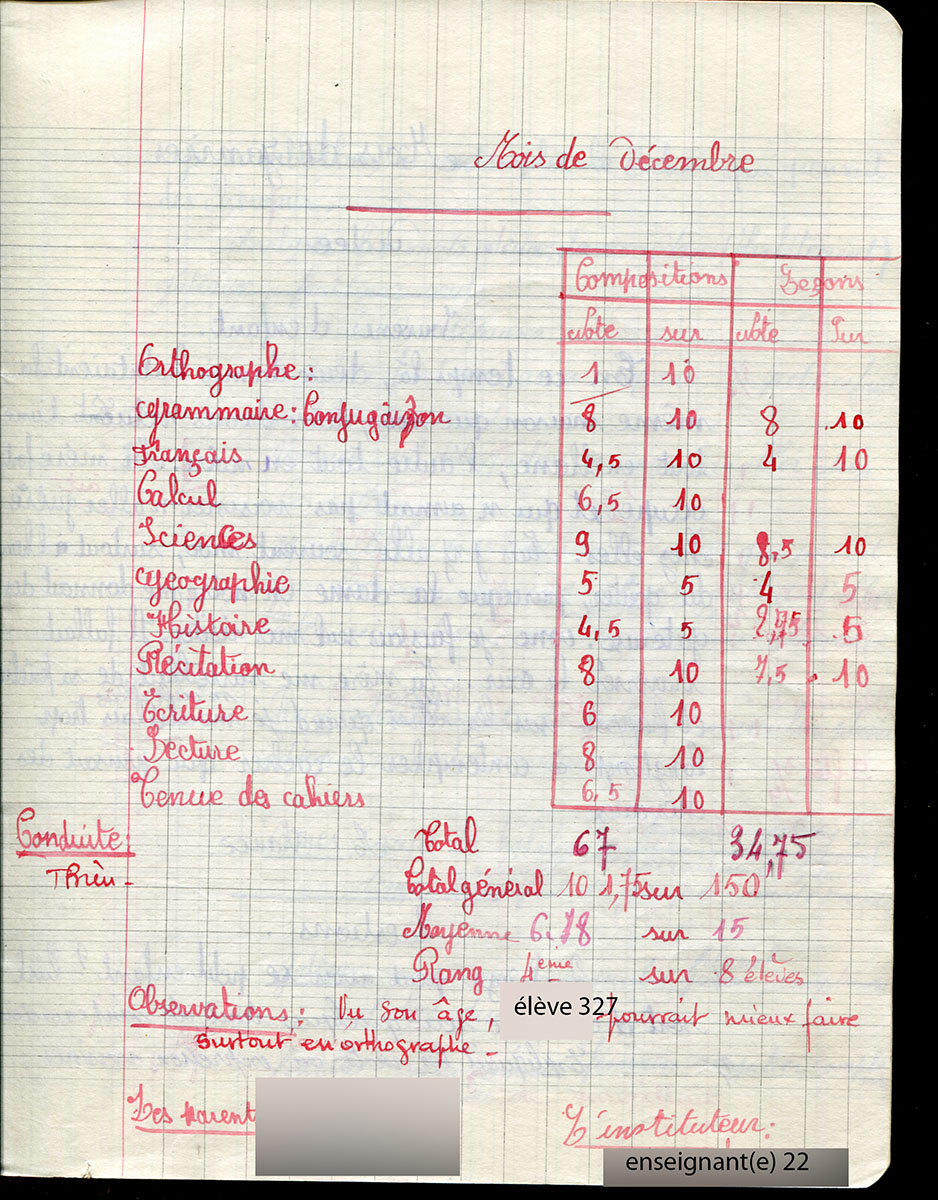 Mois de Décembre
Compositions Leçons
Note sur Note Sur
Orthographe : 1 10
Grammaire : Conjugaizon 8 10 8 10
Français 4,5 10 4 10
Calcul 6,5 10
Sciences 9 10 8,5 10
Geographie 5 5 4 5
Histoire 4,5 5 2,75 5
Récitation 8 10 7,5 10
Ecriture 6 10
Lecture 8 10
Tenue des cahiers 6,5 10
Conduite : Total 67 34,75
T. bien - Total général 101,75 sur 150
Moyenne 6.78 sur 15
Rang 4ème sur 8 élèves
Observations : Vu son âge, élève 327 - pourrait mieux faire
surtout en orthographe -
Les parent
L'instituteur :
enseignant(e) 22